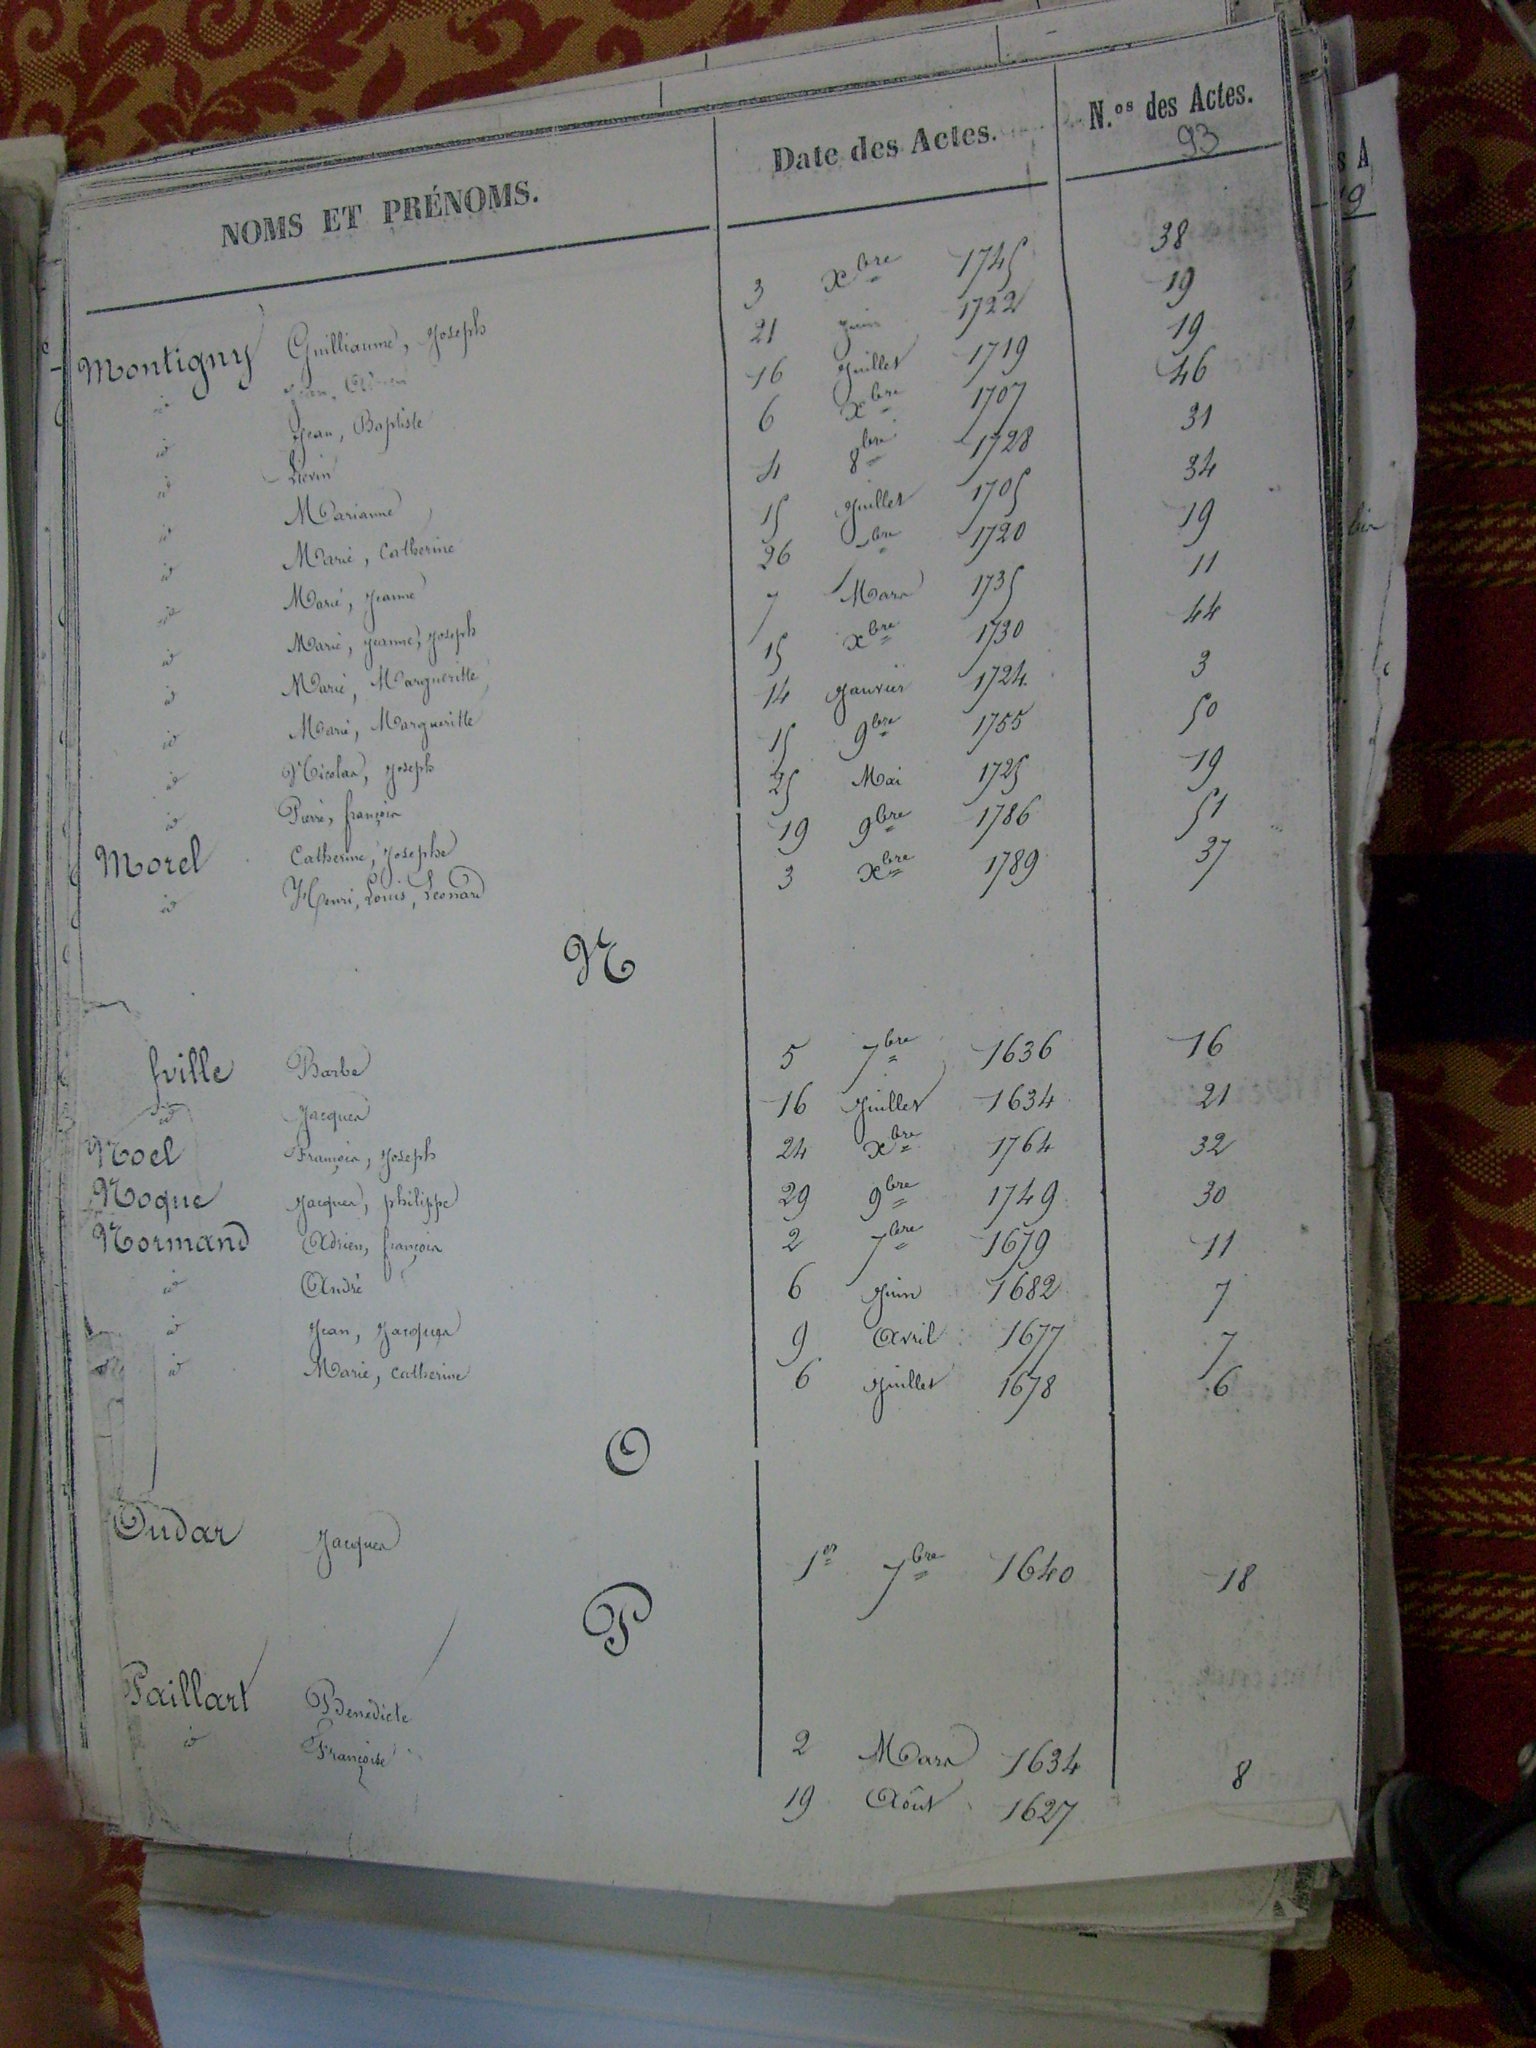 NOMS ET PRÉNOMS. Date des Actes. N.os des Actes.
93
Montigny Guilliaume, Joseph 3 Xbre 1745 38
id Jean, 21 Juin 1722 19
id Jean, Baptiste 16 Juillet 1719 19
id Lievin 6 Xbre 1707 46
id Marianne 4 8bre 1728 31
id Marie, Catherine 15 Juillet 1705 34
id Marie, Jeanne 26 bre 1720 19
id Marie, Jeanne, Joseph 7 Mars 1735 11
id Marie, Margueritte 15 Xbre 1730 44
id Marie, Margueritte 14 Janvier 1724 3
id Nicolas, Joseph 15 9bre 1755 50
id Pierre, françois 25 Mai 1725 19
Morel Catherine, Josephe 19 9bre 1786 51
id Henri, Louis, Leonard 3 Xbre 1789 37
N
fville Barbe 5 7bre 1636 16
id Jacques 16 Juillet 1634 21
Noel François, Joseph 24 Xbre 1764 32
Noque Jacques, philippe 29 9bre 1749 30
Normand Adrien, françois 2 7bre 1679 11
id André 6 Juin 1682 7
id Jean, Jacques 9 Avril 1677 7
id Marie, Catherine 6 Juillet 1678 6
O
Oudar Jacques 1er 7bre 1640 18
P
Paillart Benedicte 2 Mars 1634 8
id Françoise 19 Août 1627